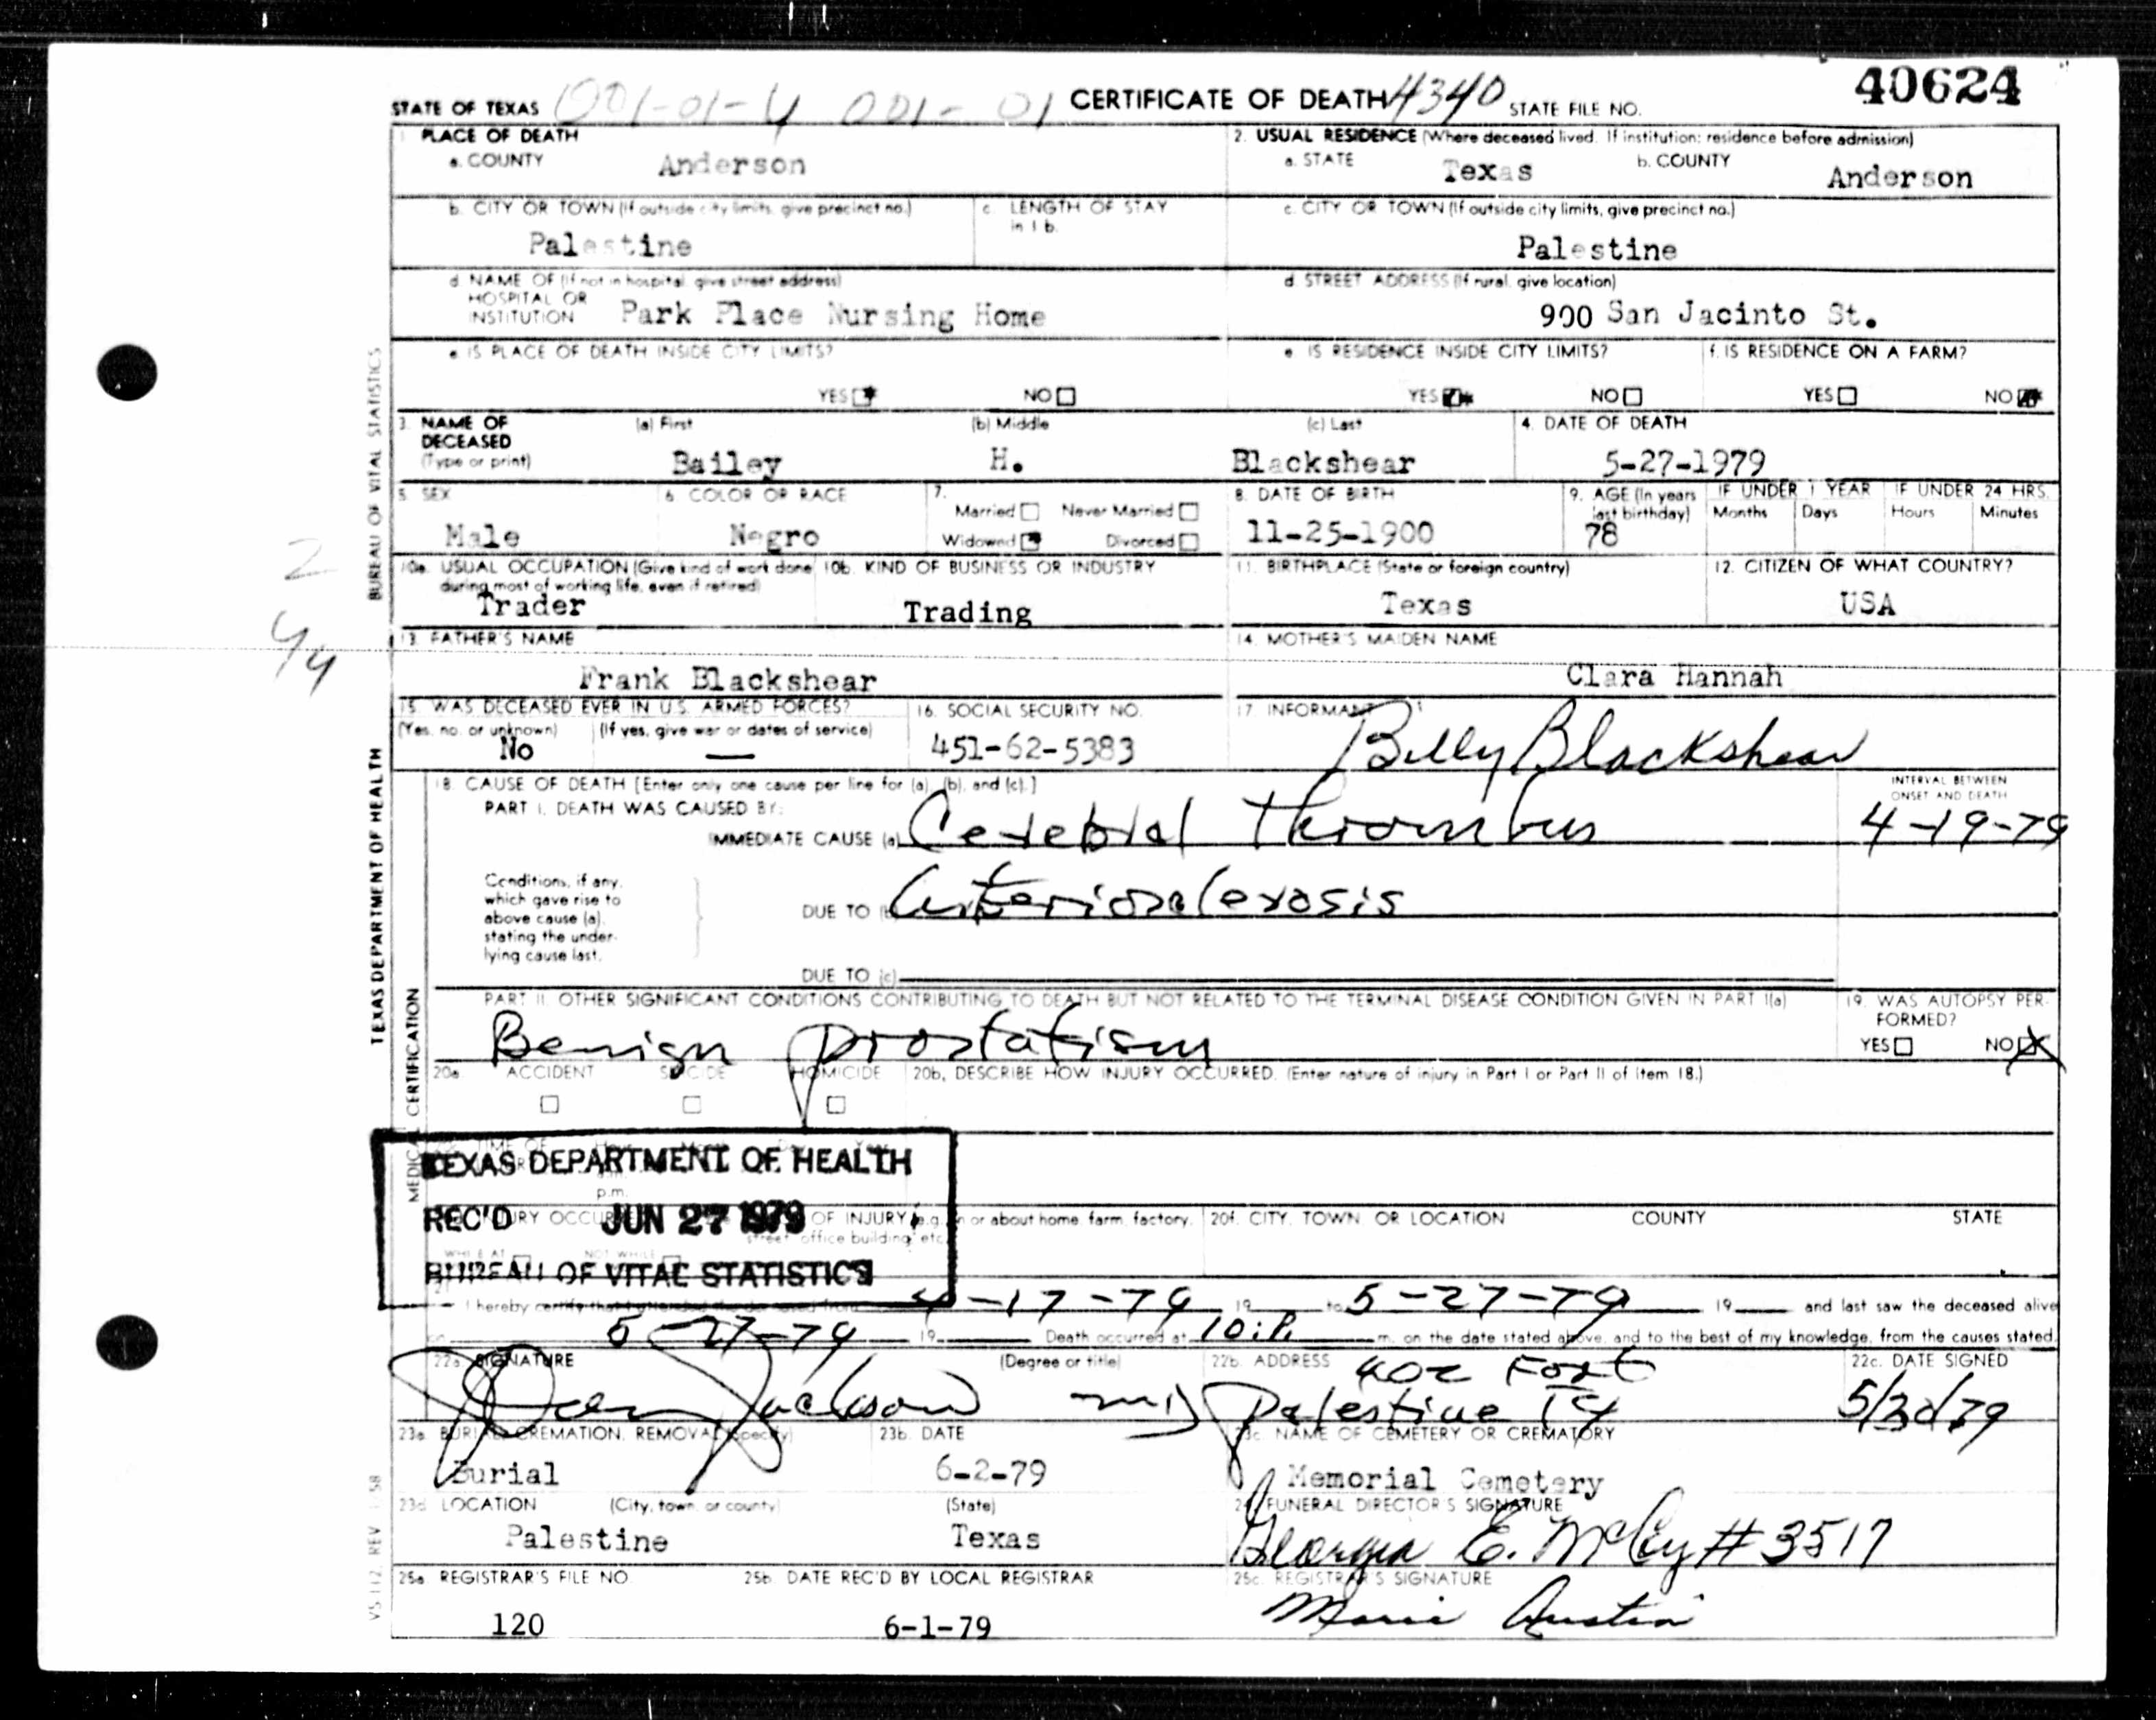 STATE OF TEXAS 001-01-4 001-01 CERTIFICATE OF DEATH 4340 STATE FILE NO. 40624
1 PLACE OF DEATH
a. COUNTY Anderson
2. USUAL RESIDENCE (Where deceased lived. If institution: residence before admission)
a. STATE Texas b. COUNTY Anderson
b. CITY OR TOWN (If outside city limits, give precinct no.) Palestine
c. LENGTH OF STAY in 1 b.
c. CITY OR TOWN (If outside city limits, give precinct no.) Palestine
d. NAME OF (If not in hospital, give street address)
HOSPITAL OR
INSTITUTION Park Place Nursing Home
d. STREET ADDRESS (If rural, give location)
900 San Jacinto St.
e. IS PLACE OF DEATH INSIDE CITY LIMITS?
YES NO
e. IS RESIDENCE INSIDE CITY LIMITS?
YES NO
f. IS RESIDENCE ON A FARM?
YES NO
3. NAME OF DECEASED (Type or print)
(a) First Bailey
(b) Middle H.
(c) Last Blackshear
4. DATE OF DEATH
5-27-1979
5. SEX
Male
6. COLOR OR RACE
Negro
7.
Married Never Married
Widowed Divorced
8. DATE OF BIRTH
11-25-1900
9. AGE (In years last birthday)
78
IF UNDER 1 YEAR
Months Days
IF UNDER 24 HRS.
Hours Minutes
10a. USUAL OCCUPATION (Give kind of work done during most of working life, even if retired)
Trader
10b. KIND OF BUSINESS OR INDUSTRY
Trading
11. BIRTHPLACE (State or foreign country)
Texas
12. CITIZEN OF WHAT COUNTRY?
USA
13. FATHER'S NAME
Frank Blackshear
14. MOTHER'S MAIDEN NAME
Clara Hannah
15. WAS DECEASED EVER IN U.S. ARMED FORCES?
(Yes, no, or unknown) (If yes, give war or dates of service)
No —
16. SOCIAL SECURITY NO.
451-62-5383
17. INFORMANT
Billy Blackshear
18. CAUSE OF DEATH [Enter only one cause per line for (a), (b), and (c).]
PART I. DEATH WAS CAUSED BY:
IMMEDIATE CAUSE (a) Cerebral Thrombus
INTERVAL BETWEEN ONSET AND DEATH
4-19-79
Conditions, if any, which gave rise to above cause (a), stating the underlying cause last.
DUE TO (b) Arterioscleroses
DUE TO (c)
PART II. OTHER SIGNIFICANT CONDITIONS CONTRIBUTING TO DEATH BUT NOT RELATED TO THE TERMINAL DISEASE CONDITION GIVEN IN PART I(a)
Benign prostatism
19. WAS AUTOPSY PERFORMED?
YES NO
20a. ACCIDENT SUICIDE HOMICIDE
20b. DESCRIBE HOW INJURY OCCURRED. (Enter nature of injury in Part I or Part II of item 18.)
TEXAS DEPARTMENT OF HEALTH
REC'D JUN 27 1979
BUREAU OF VITAL STATISTICS
p.m.
OF INJURY (e.g., in or about home, farm, factory, street, office building, etc.
20f. CITY, TOWN, OR LOCATION COUNTY STATE
I hereby certify that I attended the deceased from 4-17-79 19 to 5-27-79 19 and last saw the deceased alive
on 5-27-79 19 Death occurred at 10:P. m. on the date stated above, and to the best of my knowledge, from the causes stated.
22a. SIGNATURE (Degree or title)
Jackson MD
22b. ADDRESS
402 Fort
Palestine TX
22c. DATE SIGNED
5/30/79
23a. BURIAL, CREMATION, REMOVAL (Specify)
Burial
23b. DATE
6-2-79
23c. NAME OF CEMETERY OR CREMATORY
Memorial Cemetery
23d. LOCATION (City, town, or county) (State)
Palestine Texas
24. FUNERAL DIRECTOR'S SIGNATURE
Georgia E. McCy #3517
25a. REGISTRAR'S FILE NO.
120
25b. DATE REC'D BY LOCAL REGISTRAR
6-1-79
25c. REGISTRAR'S SIGNATURE
Marie Austin
TEXAS DEPARTMENT OF HEALTH BUREAU OF VITAL STATISTICS
MEDICAL CERTIFICATION
VS 112, REV 1 58
2
4/4